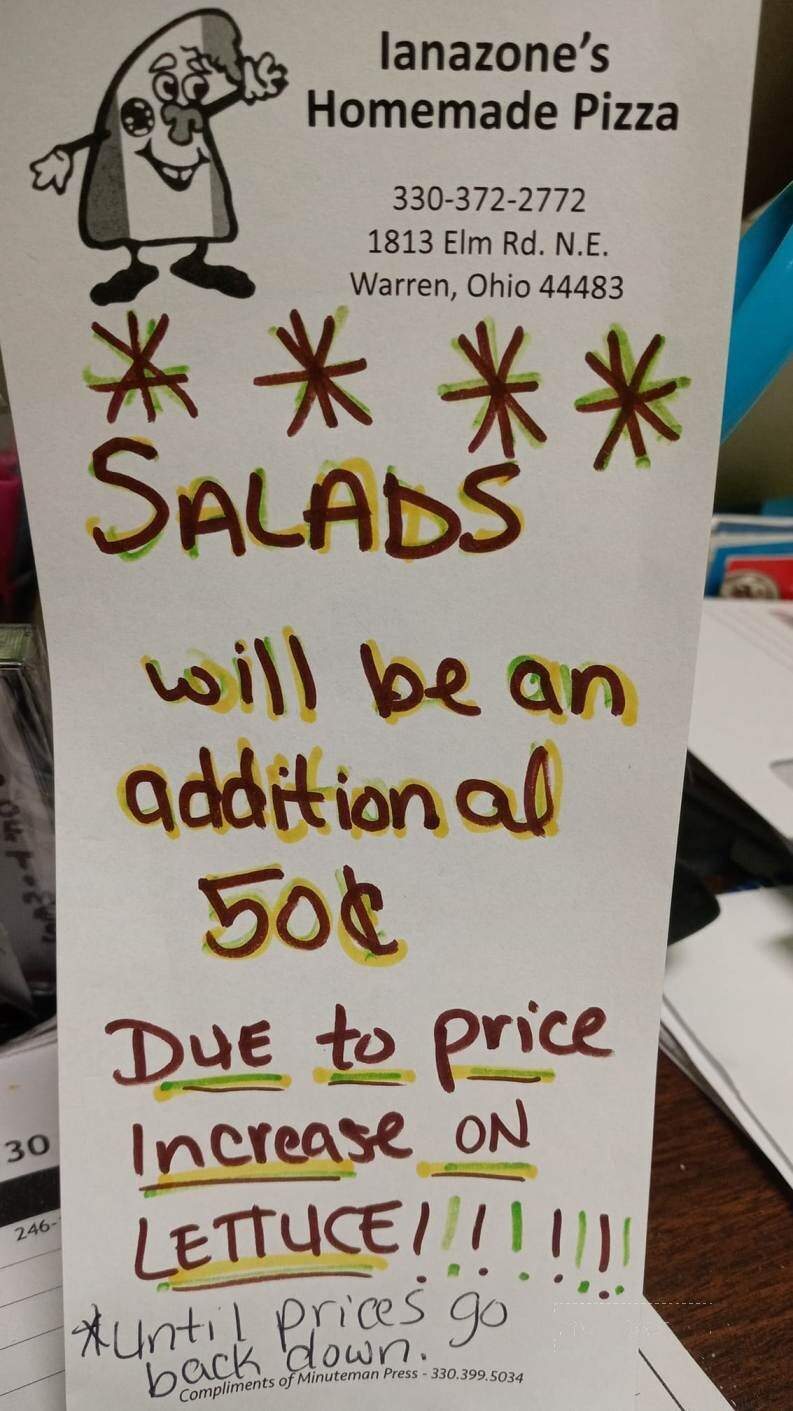 Ianazone's
Homemade Pizza
330-372-2772
1813 Elm Rd. N.E.
Warren, Ohio 44483
* * * *
SALADS
will be an
additional
50¢
DUE to price
Increase ON
LETTUCE!!!!!!!!
*until prices go
back down.
Compliments of Minuteman Press - 330.399.5034
30
246-